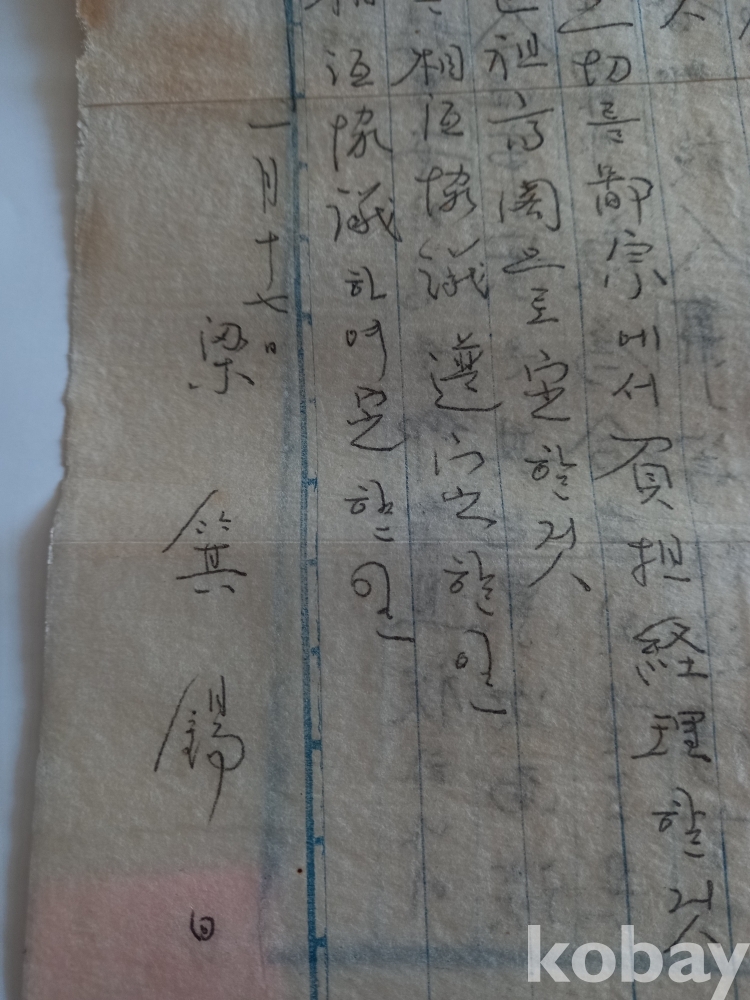 人
切를 鄙宗에서 負担経理할 것
祖高閣으로 定할 것
相互協議 選定할 일
相互協議하여 定할 일
一月十七日
梁 箕 錫
kobay